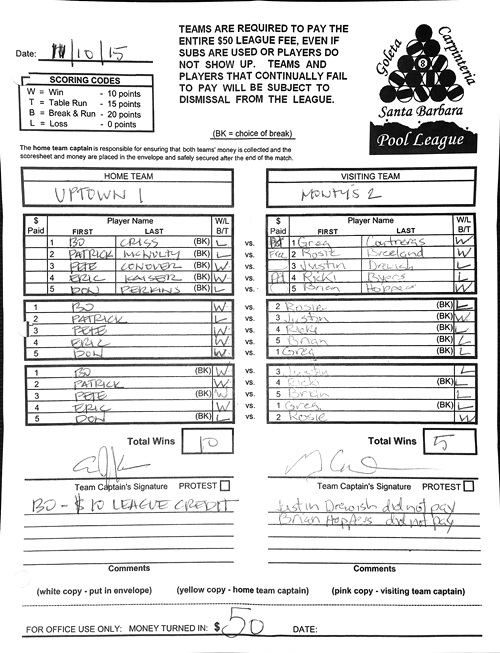 TEAMS ARE REQUIRED TO PAY THE
ENTIRE $50 LEAGUE FEE, EVEN IF
SUBS ARE USED OR PLAYERS DO
NOT SHOW UP. TEAMS AND
PLAYERS THAT CONTINUALLY FAIL
TO PAY WILL BE SUBJECT TO
DISMISSAL FROM THE LEAGUE.
(BK = choice of break)
Date: 11/10/15
SCORING CODES
W = Win - 10 points
T = Table Run - 15 points
B = Break & Run - 20 points
L = Loss - 0 points
Goleta Carpinteria
8
Santa Barbara
Pool League
The home team captain is responsible for ensuring that both teams' money is collected and the
scoresheet and money are placed in the envelope and safely secured after the end of the match.
HOME TEAM VISITING TEAM
UPTOWN 1 MONTY'S 2
$ Paid Player Name FIRST LAST W/L B/T $ Paid Player Name FIRST LAST W/L B/T
1 BO CRISS (BK) L vs. Pd 1 Greg Contreras W
2 PATRICK MCNULTY (BK) L vs. 2 Rosie Breeland W
3 PETE CONOVER (BK) W vs. 3 Justin Drewish L
4 ERIC KAISER (BK) W vs. Pd 4 Ricki Byers L
5 DON PERKINS (BK) L vs. 5 Brian Hoppers W
1 BO W vs. 2 Rosie (BK) L
2 PATRICK L vs. 3 Justin (BK) W
3 PETE W vs. 4 Ricki (BK) L
4 ERIC W vs. 5 Brian (BK) L
5 DON W vs. 1 Greg (BK) L
1 BO (BK) W vs. 3 Justin L
2 PATRICK W vs. 4 Ricki (BK) L
3 PETE (BK) W vs. 5 Brian L
4 ERIC W vs. 1 Greg (BK) L
5 DON (BK) L vs. 2 Rosie W
Total Wins 10 Total Wins 5
Team Captain's Signature PROTEST Team Captain's Signature PROTEST
BO - $10 LEAGUE CREDIT Justin Drewish did not pay
Brian Hoppers did not pay
Comments Comments
(white copy - put in envelope) (yellow copy - home team captain) (pink copy - visiting team captain)
FOR OFFICE USE ONLY: MONEY TURNED IN: $ 50 DATE: